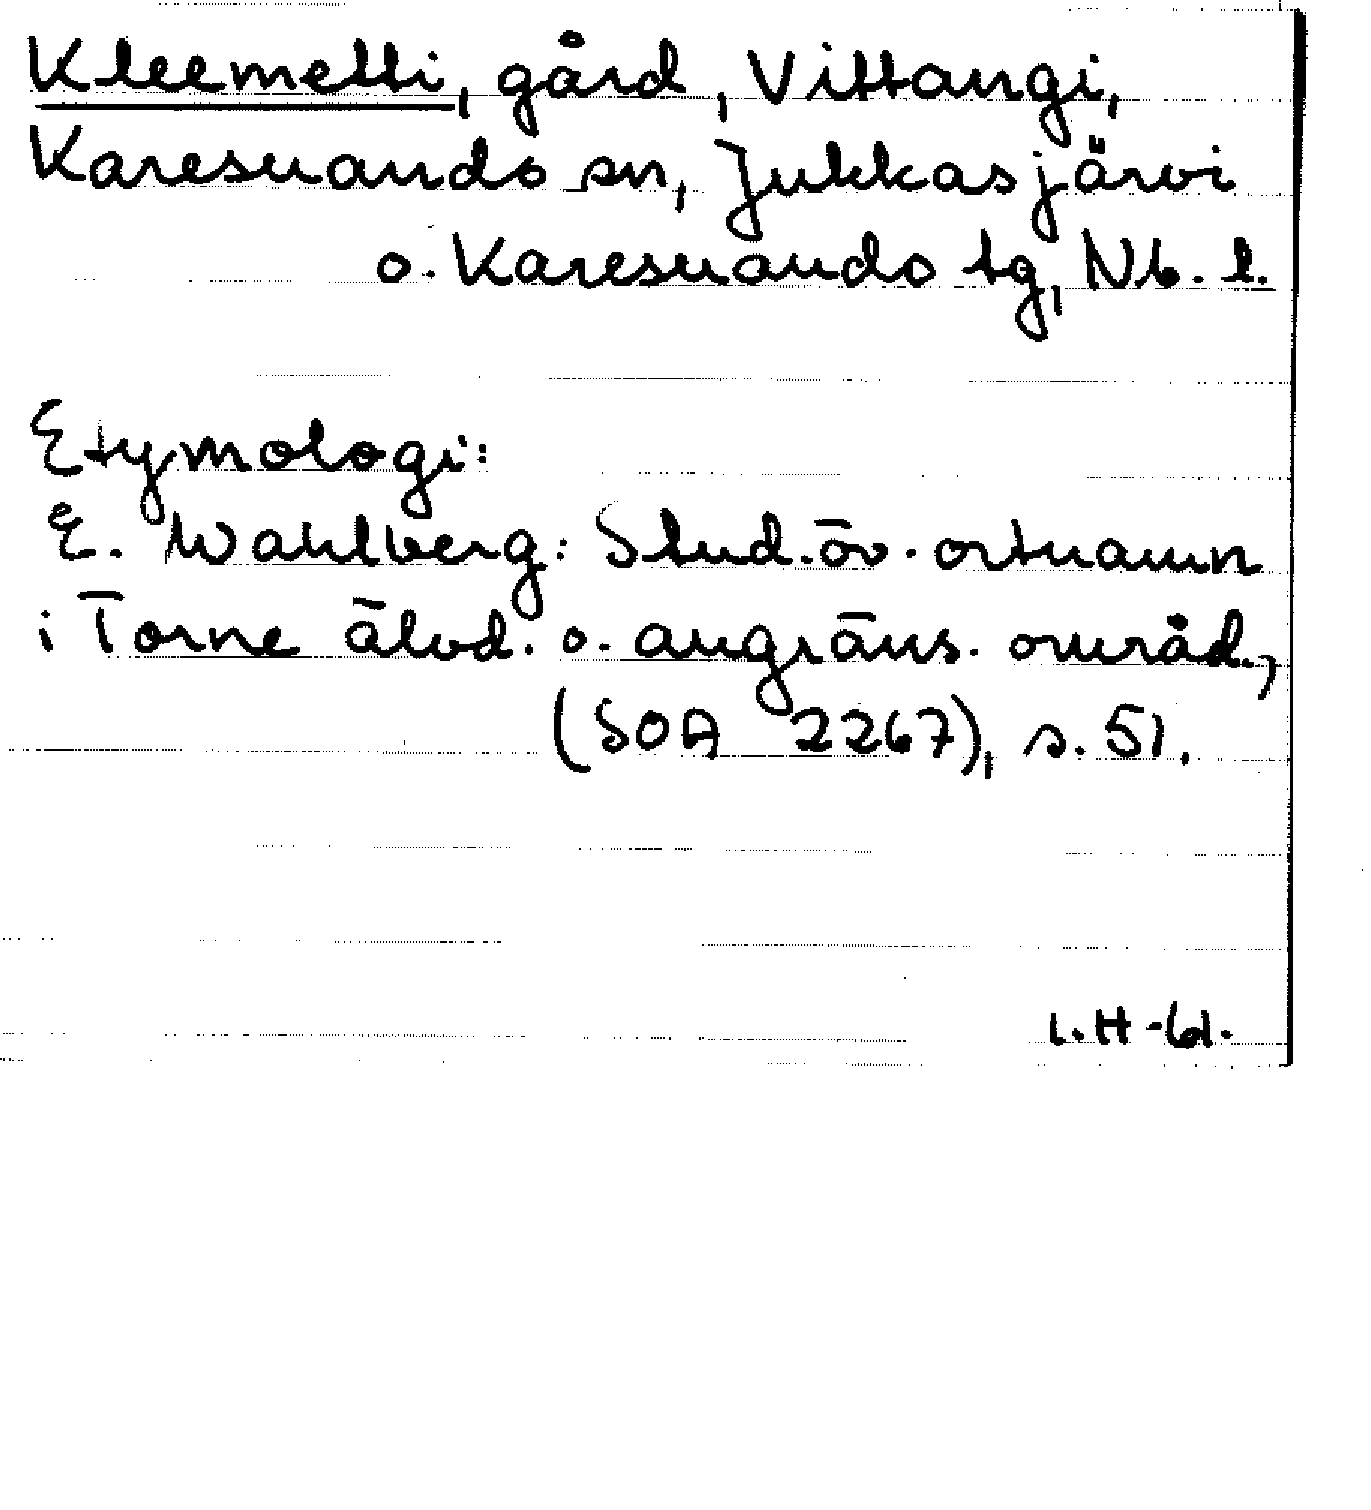 Kleemetti, gård, Vittangi,
Karesuando sn, Jukkasjärvi
o. Karesuando tg, Nb. l.
Etymologi:
E. Wahlberg: Stud. öv. ortnamn
i Torne älvd. o. angräns. områd.,
(SOA 2267), s. 51.
I.H-61.